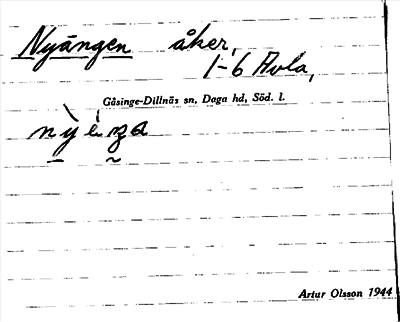 Nyängen åker,
1-6 Avla,
Gåsinge-Dillnäs sn, Daga hd, Söd. l.
Artur Olsson 1944